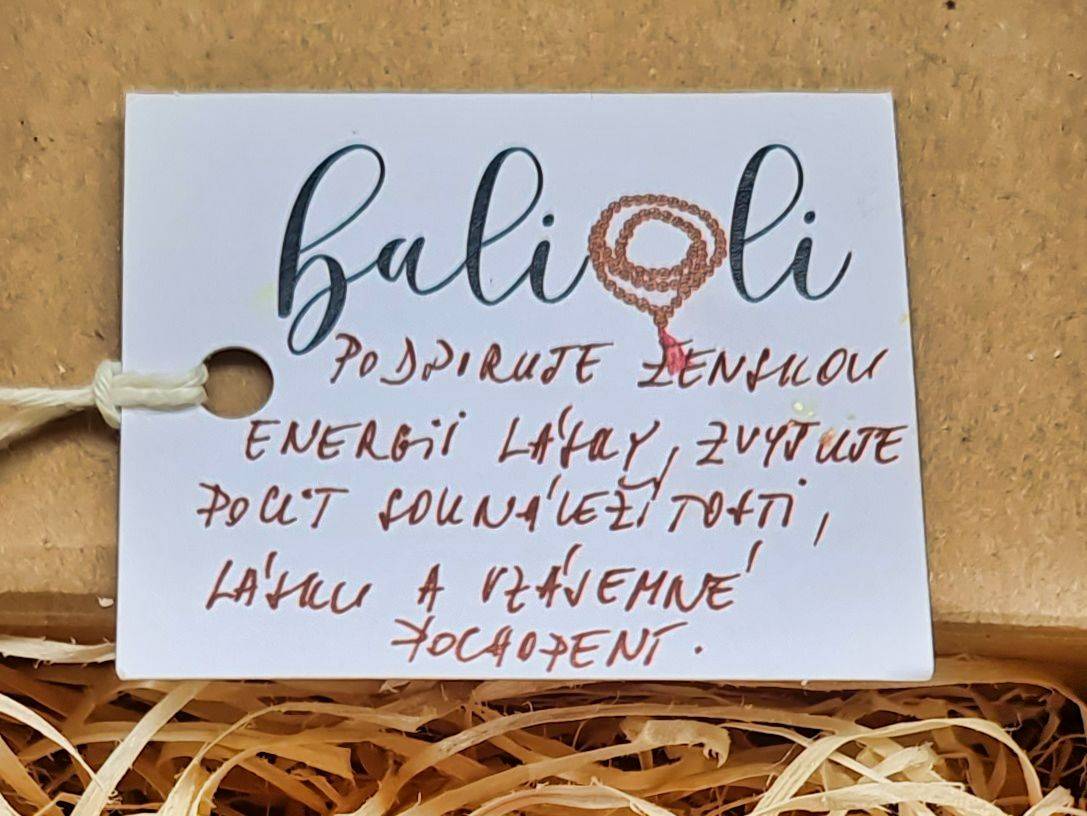 baliOli
PODPIRUJE ŽENSKOU
ENERGII LÁSKY, ZVYŠUJE
POCIT SOUNÁLEŽITOSTI,
LÁSKU A VZÁJEMNÉ
POCHOPENÍ.